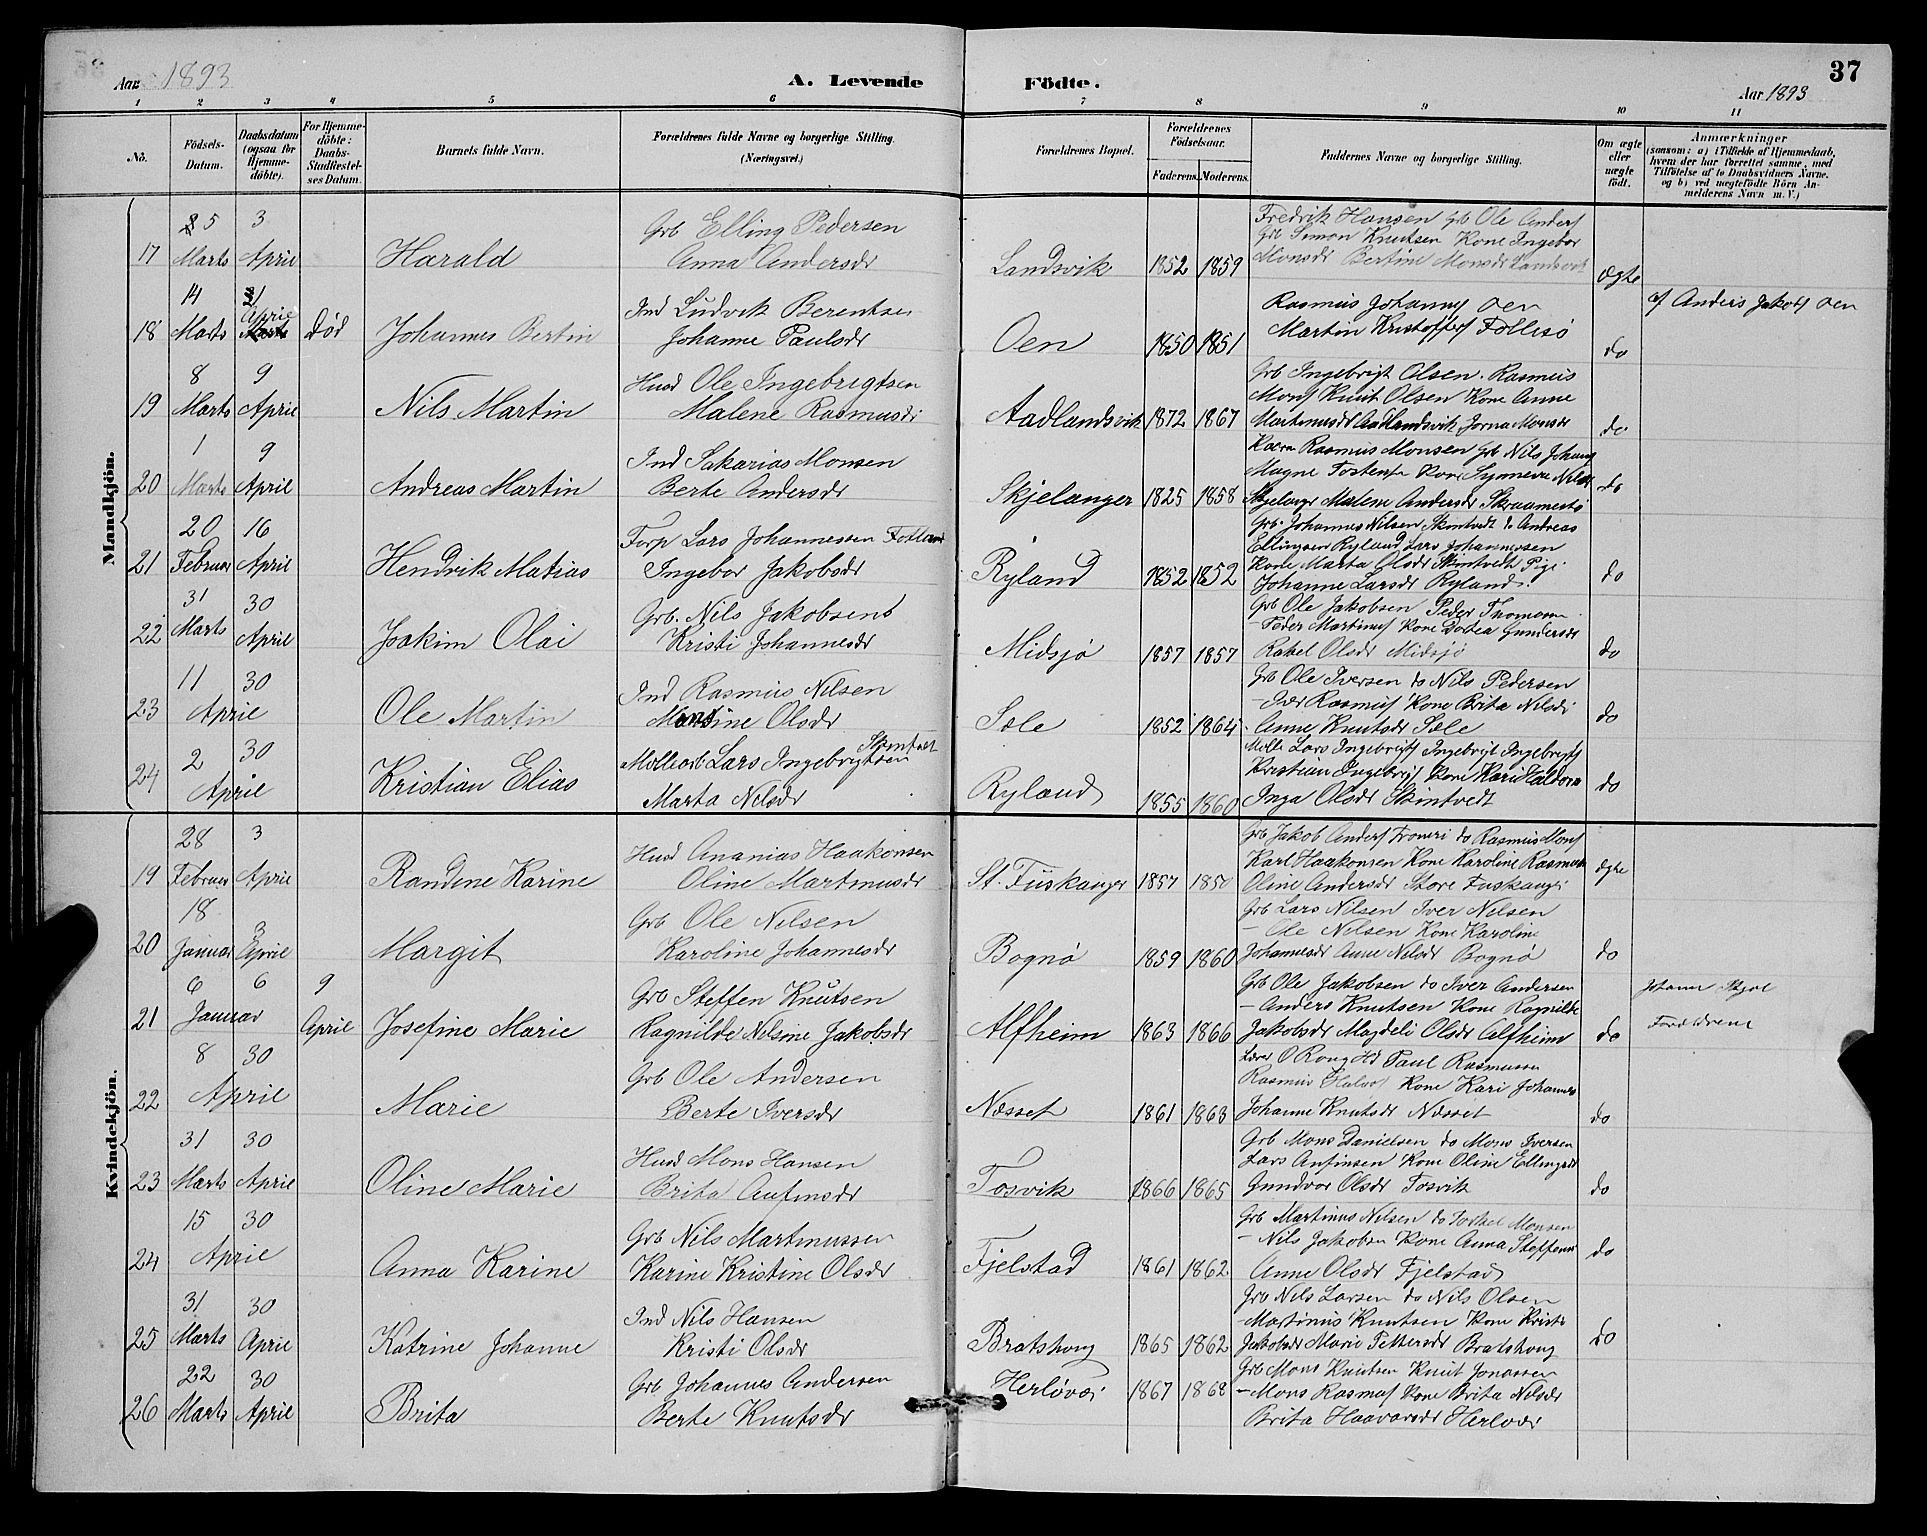 37
Aar 1893
A. Levende
Födte.
Aar 1893
1 2 3 4 5 6 7 8 9 10 11
No.
Födsels-
Datum.
Daabsdatum
(ogsaa for
Hjemme-
döbte).
For Hjemme-
döbte:
Daabs-
Stadfæstel-
ses Datum.
Barnets fulde Navn.
Forældrenes fulde Navne og borgerlige Stilling.
(Næringsvei.)
Forældrenes Bopæl.
Forældrenes
Födselsaar.
Faderens. Moderens.
Faddernes Navne og borgerlige Stilling.
Om ægte
eller
uægte
födt.
Anmærkninger
(saasom: a) i Tilfælde af Hjemmedaab,
hvem der har forrettet samme, med
Tilföielse af to Daabsvidners Navne.
og b) ved uægtefödte Börn An-
melderens Navn m. V.)
Mandkjön.
5 3
17 Marts April Harald
Grb Elling Pedersen
Anna Andersdr
Landsvik 1852 1859
Fredrik Hansen Grb Ole Anders
Grb Simon Knutsen Kone Ingebor
Monsdr Bertine Monsdr Landsvik
ægte
14 21
18 Marts April Död Johannes Bertin
Ind Ludvik Berentsen
Johanne Paulsdr
Oen 1850 1851
Rasmus Johannes Oen
Martin Kristoffers Follesö
do
af Anders Jakobs Oen
8 9
19 Marts April Nils Martin
Husd Ole Ingebrigtsen
Malene Rasmusdr
Aadlandsvik 1872 1867
Grb Ingebrigt Olsen Rasmus
Mons Knut Olsen Kone Anne
Martinusdr Aadlandsvik Jorna Monsdr
do
1 9
20 Marts April Andreas Martin
Ind Sakarias Monsen
Berte Andersdr
Skjelanger 1825 1858
Rasmus Monsen Grb Nils Johans
Magne Tostens Kone Synneva Nilsdr
Skjelangr Malene Andersdr Skraamestö
do
20 16
21 Februar April Hendrik Matias
Forp Lars Johannessen Fotland
Ingebor Jakobsdr
Ryland 1852 1852
Grb. Johannes Nilsen Skintvedt do Andreas
Ellingsen Ryland Lars Johannessen
Kone Marta Olsdr Skintvedt Pige
Johanne Larsdr Ryland
do
31 30
22 Marts April Joakim Olai
Grb. Nils Jakobsen
Kristi Johannesdr
Midsjö 1857 1857
Grb Ole Jakobsen Peder Thomsen
- Peder Martinus Kone Dotea Gundersdr
Rakel Olsdr Midsjö
do
11 30
23 April Ole Martin
Ind Rasmus Nilsen
Monsine Olsdr
Sæle 1852 1864
Grb Ole Iversen do Nils Pedersen
- Iver Rasmus Kone Brita Nilsdr
Anne Knutsdr Sæle
do
2 30
24 April Kristian Elias
Mollearb Lars Ingebrigtsen Skintvet
Marta Nilsdr
Ryland 1855 1860
Molle Lars Ingebrigts Ingebrigt Ingebrigts
Kristian Ingebrigt Kone Kari Haldors
Inga Olsdr Skintvedt
do
Kvindekjön.
28 3
19 Februar April Randine Karine
Husd Ananias Haakonsen
Oline Martinusdr
St. Fuskanger 1857 1850
Grb Jakob Anders Tromri do Rasmus Mons
Karl Haakonsen Kone Karoline Rasmus
Oline Andersdr Store Fuskanger
ægte
18 3
20 Januar April Margit
Grb Ole Nilsen
Karoline Johannesdr
Bognö 1859 1860
Grb Lars Nilsen Iver Nilsen
- Ole Nilsen Kone Karoline
Johannesdr Anne Nilsdr Bognö
do
6 6 9
21 Januar April Josefine Marie
Grb Steffen Knutsen
Ragnilde Nelsine Jakobsdr
Alfheim 1863 1866
Grb Ole Jakobsen do Iver Andersen
- Anders Knutsen Kone Ragnilde
Jakobsdr Magdeli Olsdr Alfheim
do
Johann
Forældrene
8 30
22 April Marie
Grb Ole Andersen
Berte Iversdr
Næsset 1861 1863
Lærer O Rong Hd Paul Rasmussen
Rasmus Halvors Kone Kari Johannes
Johanne Knutsdr Næsset
do
31 30
23 Marts April Oline Marie
Husd Mons Hansen
Brita Anfinsdr
Tosvik 1866 1865
Grb Mons Danielsen do Mons Iversen
Lars Anfinsen Kone Oline Ellingsdr
Gundvor Olsdr Tosvik
do
15 30
24 April Anna Karine
Grb Nils Martinussen
Karine Kristine Olsdr
Fjelstad 1861 1862
Grb Martinus Nilsen do Torkel Monsen
- Nils Jakobsen Kone Anna Steffens
Anne Olsdr Fjelstad
do
31 30
25 Marts April Katrine Johanne
Ind Nils Hansen
Kristi Olsdr
Bratshoug 1865 1862
Grb Nils Larsen do Nils Olsen
Martinus Knutsen Kone Kristi
Jakobsdr Marie Pettersdr Bratshoug
do
22 30
26 Marts April Brita
Grb Johannes Andersen
Berte Knutsdr
Herlövær 1867 1868
Grb Mons Knutsen Knut Jonassen
- Mons Rasmus Kone Brita Nilsdr
Brita Haavarsdr Herlövær